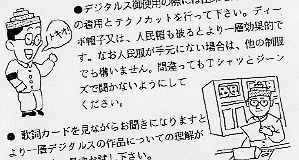 トキオ!
●デジタルス御使用の際には
の着用とテクノカットを行って下さい。ディー
ボ帽子又は、人民帽も被るとより一層効果的で
す。なお人民服が手元にない場合は、他の制服
でも構いません。間違ってもTシャツとジーン
ズで聞かないようにして
ください。
●歌詞カードを見ながらお聞きになりますと
より一層デジタルスの作品についての理解が
お試し下さい。